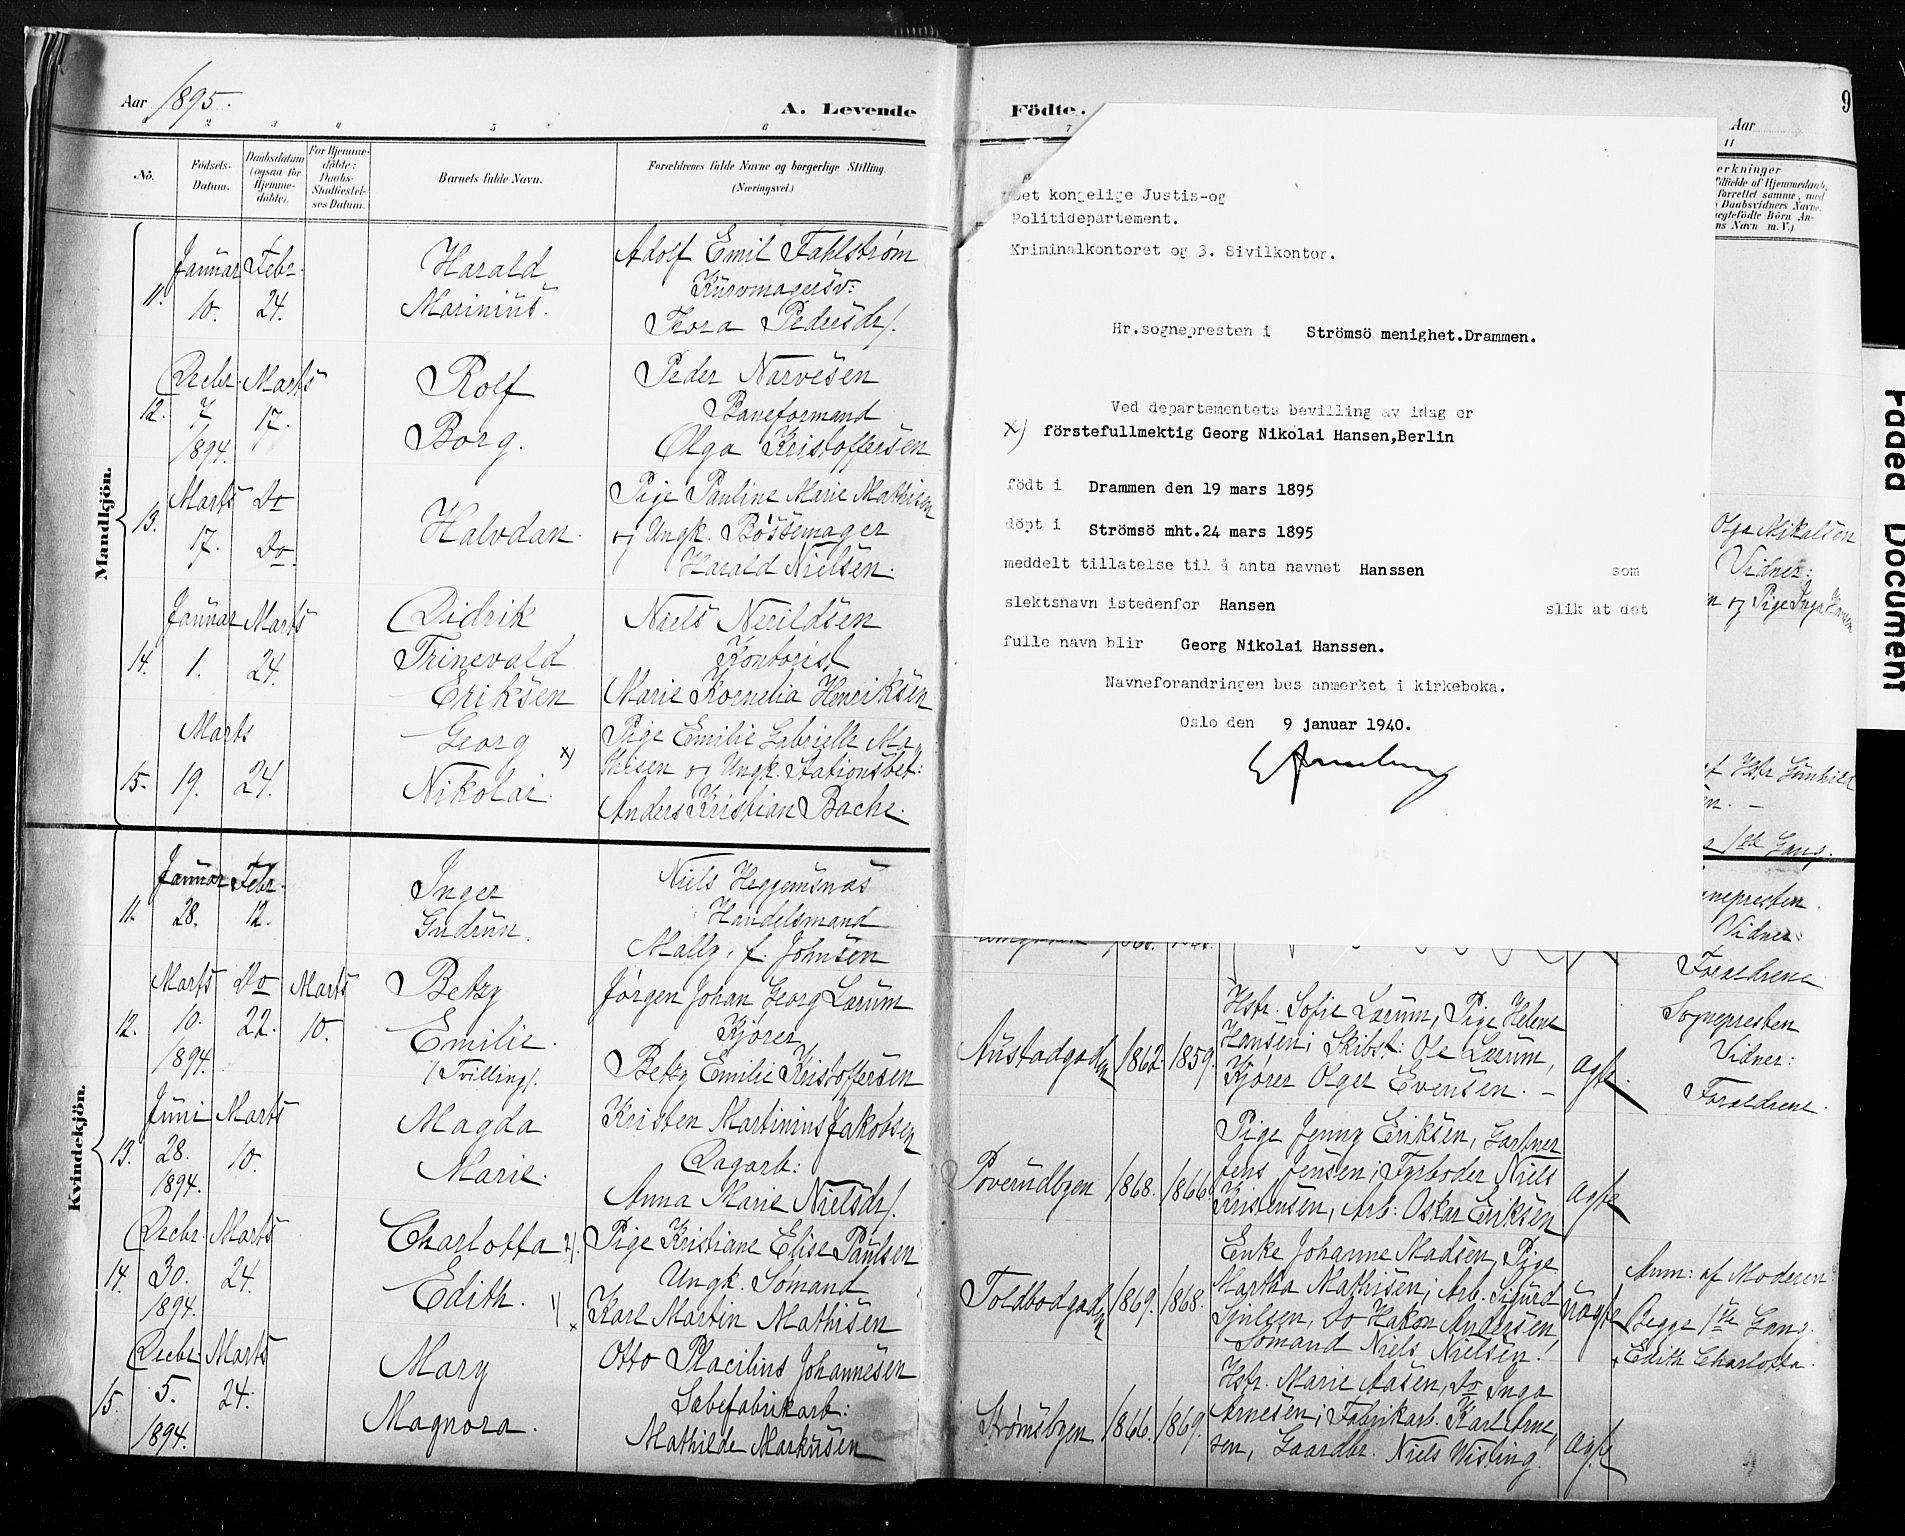 Aar 1895.
A. Levende
No.
Födsels-
Datum.
Daabsdatum
(ogsaa for
Hjemme-
döbte).
For Hjemme-
döbte:
Daabs-
Stadfæstel-
ses Datum.
Barnets fulde Navn.
Forældrenes fulde Navne og borgerlige Stilling.
(Næringsvei.)
Mandkjön.
11.
Januar Febr.
10. 24.
Harald
Marinius.
Adolf Emil Fahlstrøm
Kurvmagersv:
Thora Pedersdr.
12.
Decbr. Marts
7 17.
1894.
Rolf
Borg.
Peder Narvesen
Baneformand
Olga Kristoffersen
13.
Marts Do
17. Do.
Halvdan.
Pige Pauline Marie Mathisen
og Ungk. Bøssemager
Harald Nielsen.
14.
Januar Marts
1. 24.
Didrik
Trinevald
Eriksen
Niels Nerildsen
Kontorist
Marie Kornelia Henriksen
15.
Marts
19. 24.
Georg x)
Nikolai.
Pige Emilie Gabrielle Ma-
thisen og Ungk. Stationsbet:
Anders Kristian Bache.
Kvindekjön.
11.
Januar Febr.
28. 12.
Inger
Gudrun.
Niels Heggemsnæs
Handelsmand
Mally, f. Johnsen
12.
Marts Do Marts
10. 22. 10.
1894.
Betzy
Emilie.
(Tvilling).
Jørgen Johan Georg Lærum
Kjører
Betzy Emilie Kristoffersen
13.
Juni Marts
28. 10.
1894.
Magda
Marie.
Kristen Martinius Jakobsen
Dagarb:
Anna Marie Nielsdr.
14.
Decbr. Marts
30. 24.
1894.
Charlotta 2).
Edith. 1)
Pige Kristiane Elise Paulsen
Ungk. Sømand
x Karl Martin Mathisen
15.
Decbr. Marts
5. 24.
1894.
Mary
Magnora.
Otto Placilius Johannesen
Sæbefabrikarb:
Mathilde Markusen
Födte.
9
Aar
11
erkninger
Tilfælde af Hjemmedaab,
forrettet samme, med
Daabsvidners Navne.
ægtefödte Börn An-
ns Navn m. V.)
Det kongelige Justis-og
Politidepartement.
Kriminalkontoret og 3. Sivilkontor.
Hr.sognepresten i Strömsö menighet.Drammen.
Ved departementets bevilling av idag er
x) förstefullmektig Georg Nikolai Hansen,Berlin
födt i Drammen den 19 mars 1895
döpt i Strömsö mht.24 mars 1895
meddelt tillatelse til å anta navnet Hanssen som
slektsnavn istedenfor Hansen slik at det
fulle navn blir Georg Nikolai Hanssen.
Navneforandringen bes anmerket i kirkeboka.
Oslo den 9 januar 1940.
Olga Mikalsen
Vidner:
n og Pige Inga Hansen
af Hstr Gunhild
en. –
1ste Gang.
gnepresten.
Vidner:
Forældrene
Austadgaden 1862 1859.
Hstr. Sofie Lærum, Pige Helene
Hansen; Skibst: Ole Lærum,
Kjører Olger Evensen. –
ægte.
Sognepresten
Vidner:
Forældrene.
Poverudbyen 1868. 1866.
Pige Jenny Eriksen, Gartner
Jens Jensen; Fyrbøder Niels
Kristensen, Arb: Oskar Eriksen
ægte
Toldbodgaden 1869. 1868.
Enke Johanne Madsen, Pige
Martha Mathisen; Arb. Sigurd
Do Hakon Andersen,
Sømand Niels Nielsen.
uægte
Anm: af Moderen
Begge 1ste Gang.
x Edith Charlotta.
Strømsbyen 1866. 1869.
Hstr. Marie Aasen, Do Inga
Arnesen; Fabrikarb. Karl Arne-
sen, Gaardbr. Niels Wisting.
ægte
Faded Document